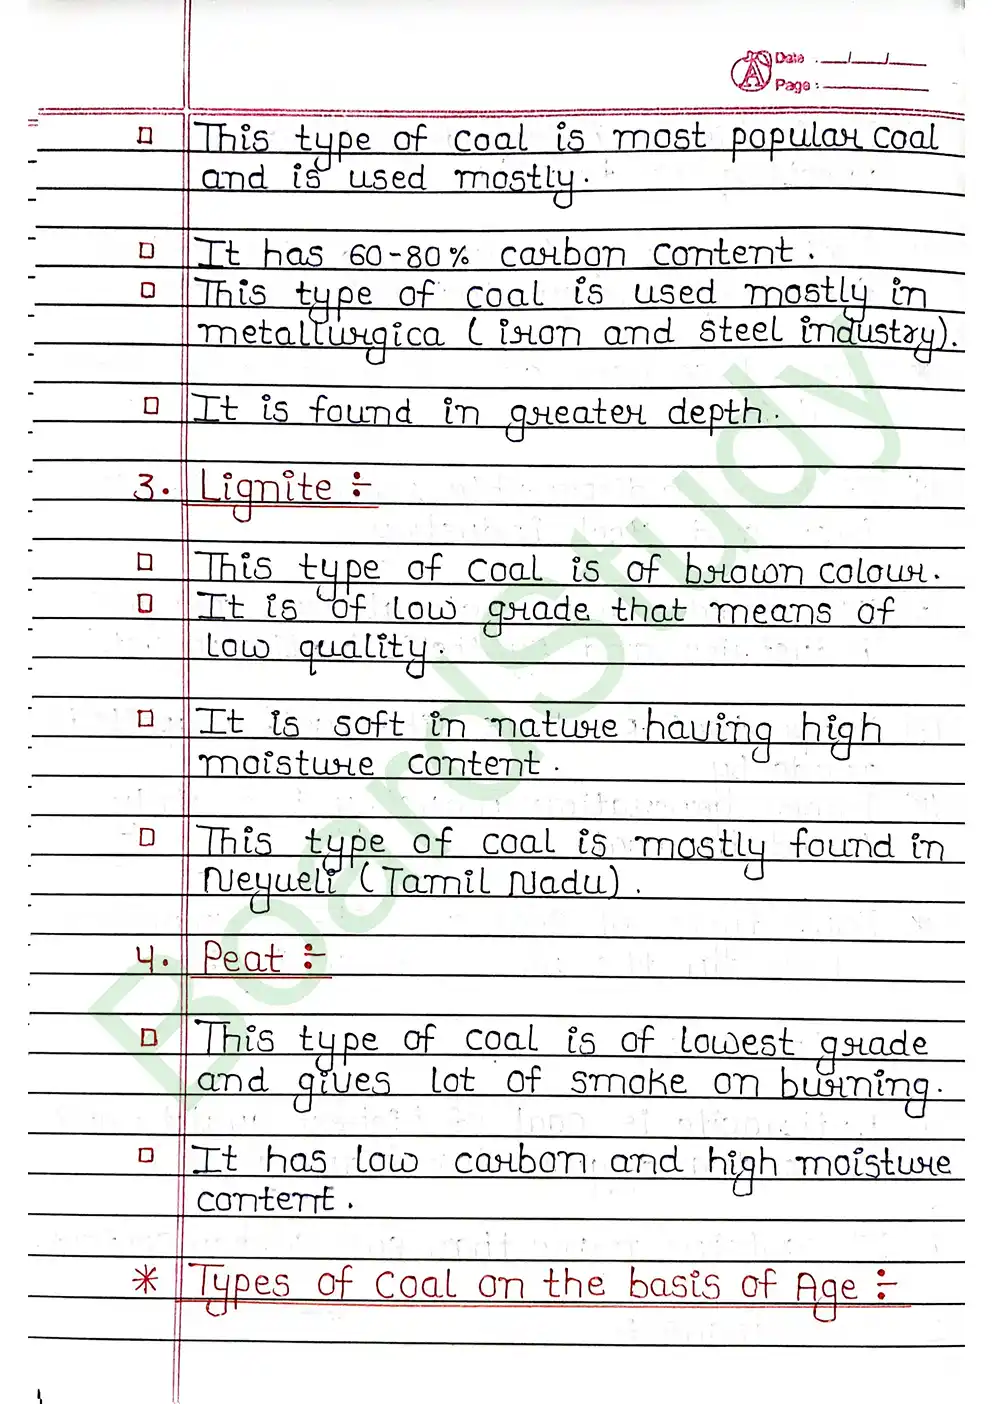 Date : __/__/__
Page : ______
□ This type of coal is most popular coal
and is used mostly.
□ It has 60-80% carbon content.
□ This type of coal is used mostly in
metallurgica ( iron and steel industry).
□ It is found in greater depth.
3. Lignite :-
□ This type of coal is of brown colour.
□ It is of low grade that means of
low quality.
□ It is soft in nature having high
moisture content.
□ This type of coal is mostly found in
Neyueli (Tamil Nadu).
4. Peat :-
□ This type of coal is of lowest grade
and gives lot of smoke on burning.
□ It has low carbon and high moisture
content.
* Types of coal on the basis of Age :-
BoardStudy